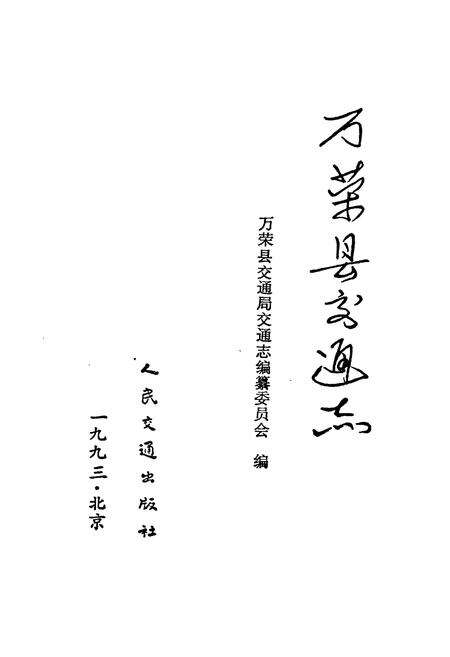 万荣县交通志
万荣县交通局交通志编纂委员会 编
人民交通出版社
一九九三·北京